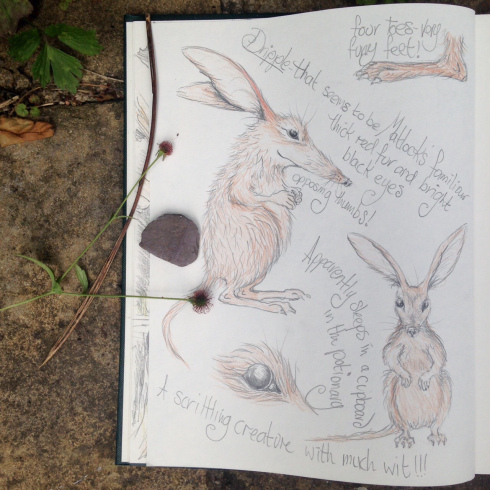 four toes-very
fury feet!
Dripple-that seems to be Matlock's familiar
thick red fur and bright
black eyes
opposing thumbs!
Apparently sleeps in a cupboard
in the potionaria
A scrittling creature with much wit!!!